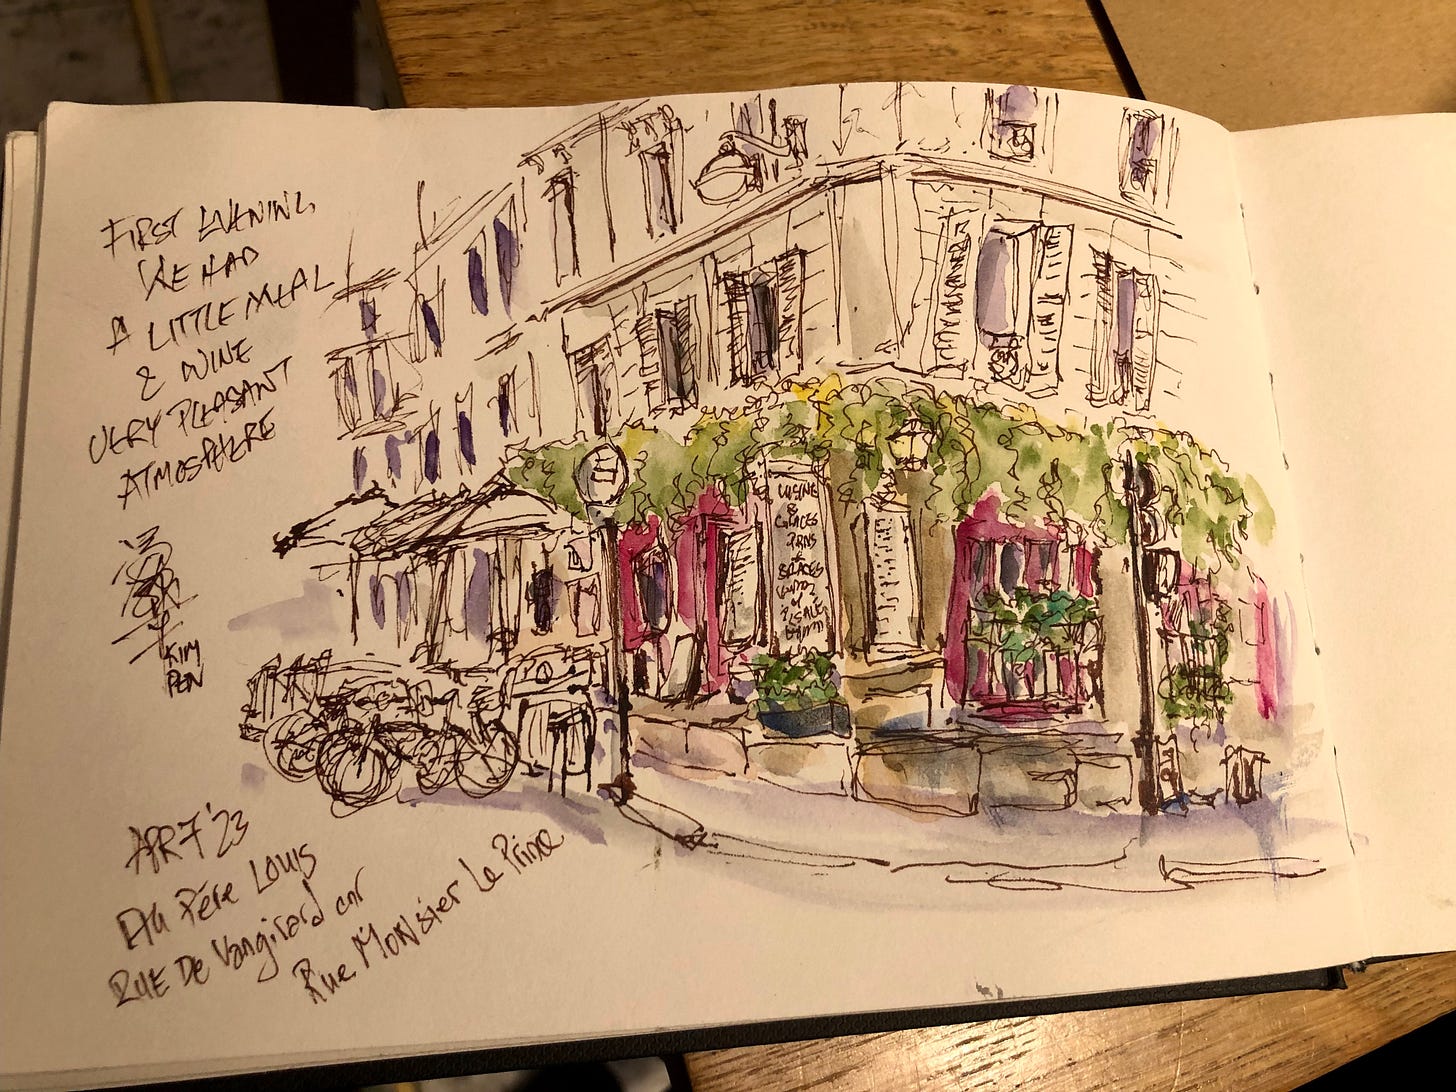 FIRST EVENING
WE HAD
A LITTLE MEAL
& WINE
VERY PLEASANT
ATMOSPHERE
KIM
PEN
CUISINE
&
GLACES
APR 7 '23
Au Père Louis
RUE DE Vangirard cnr
Rue Monsier Le Prince